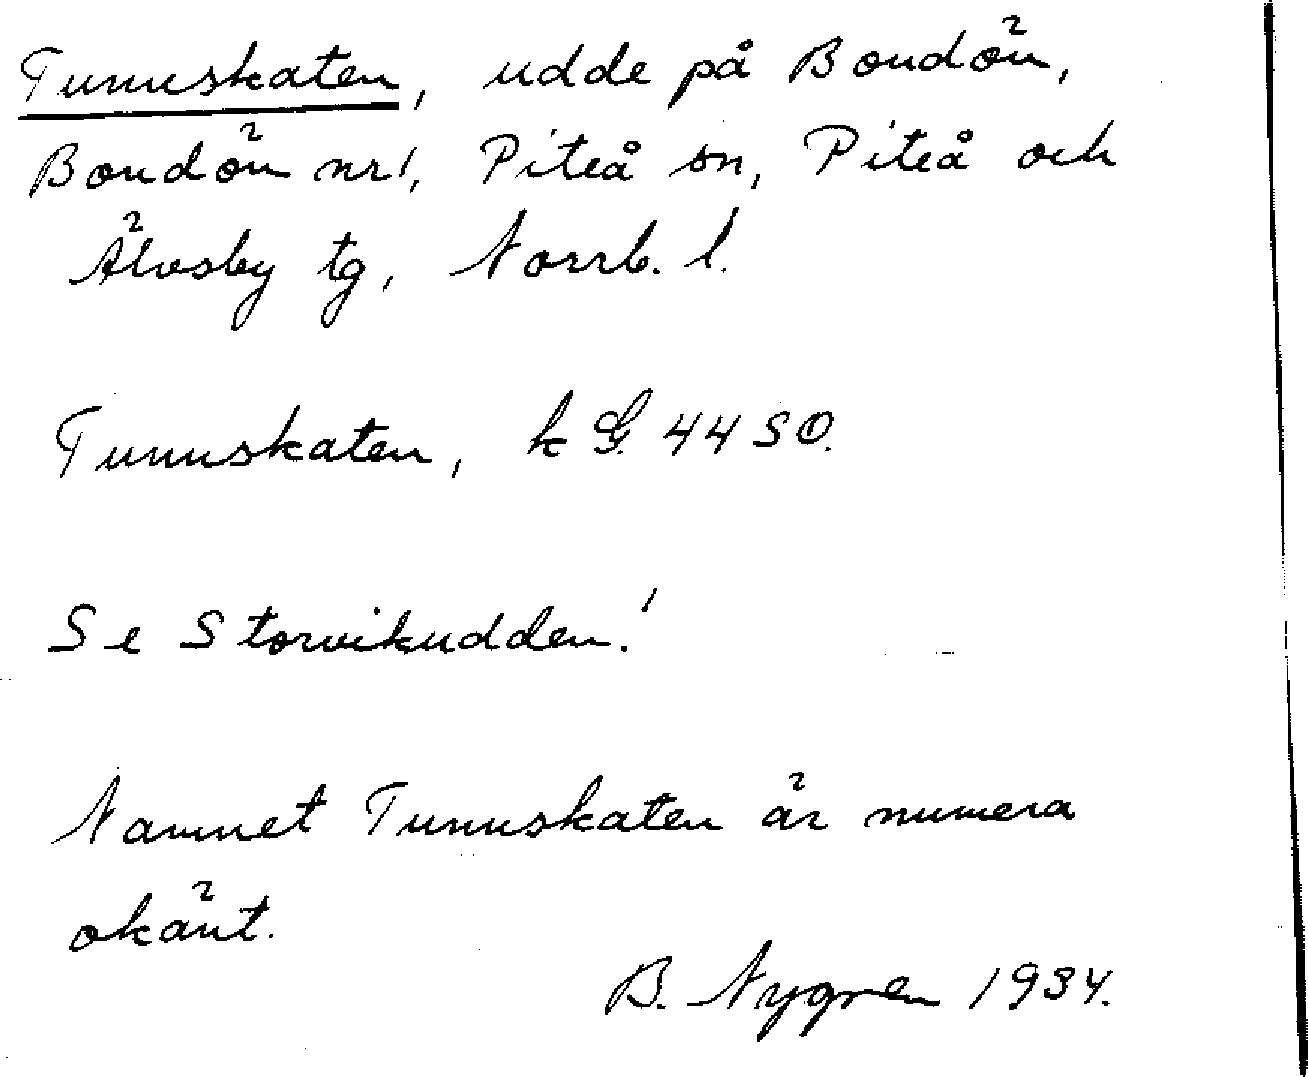 Tunnskaten, udde på Bondön,
Bondön nr 1, Piteå sn, Piteå och
Älvsby tg, Norrb. l.
Tunnskaten, k G. 44 SO.
Se Storvikudden!
Namnet Tunnskaten är numera
okänt.
B. Nygren 1934.